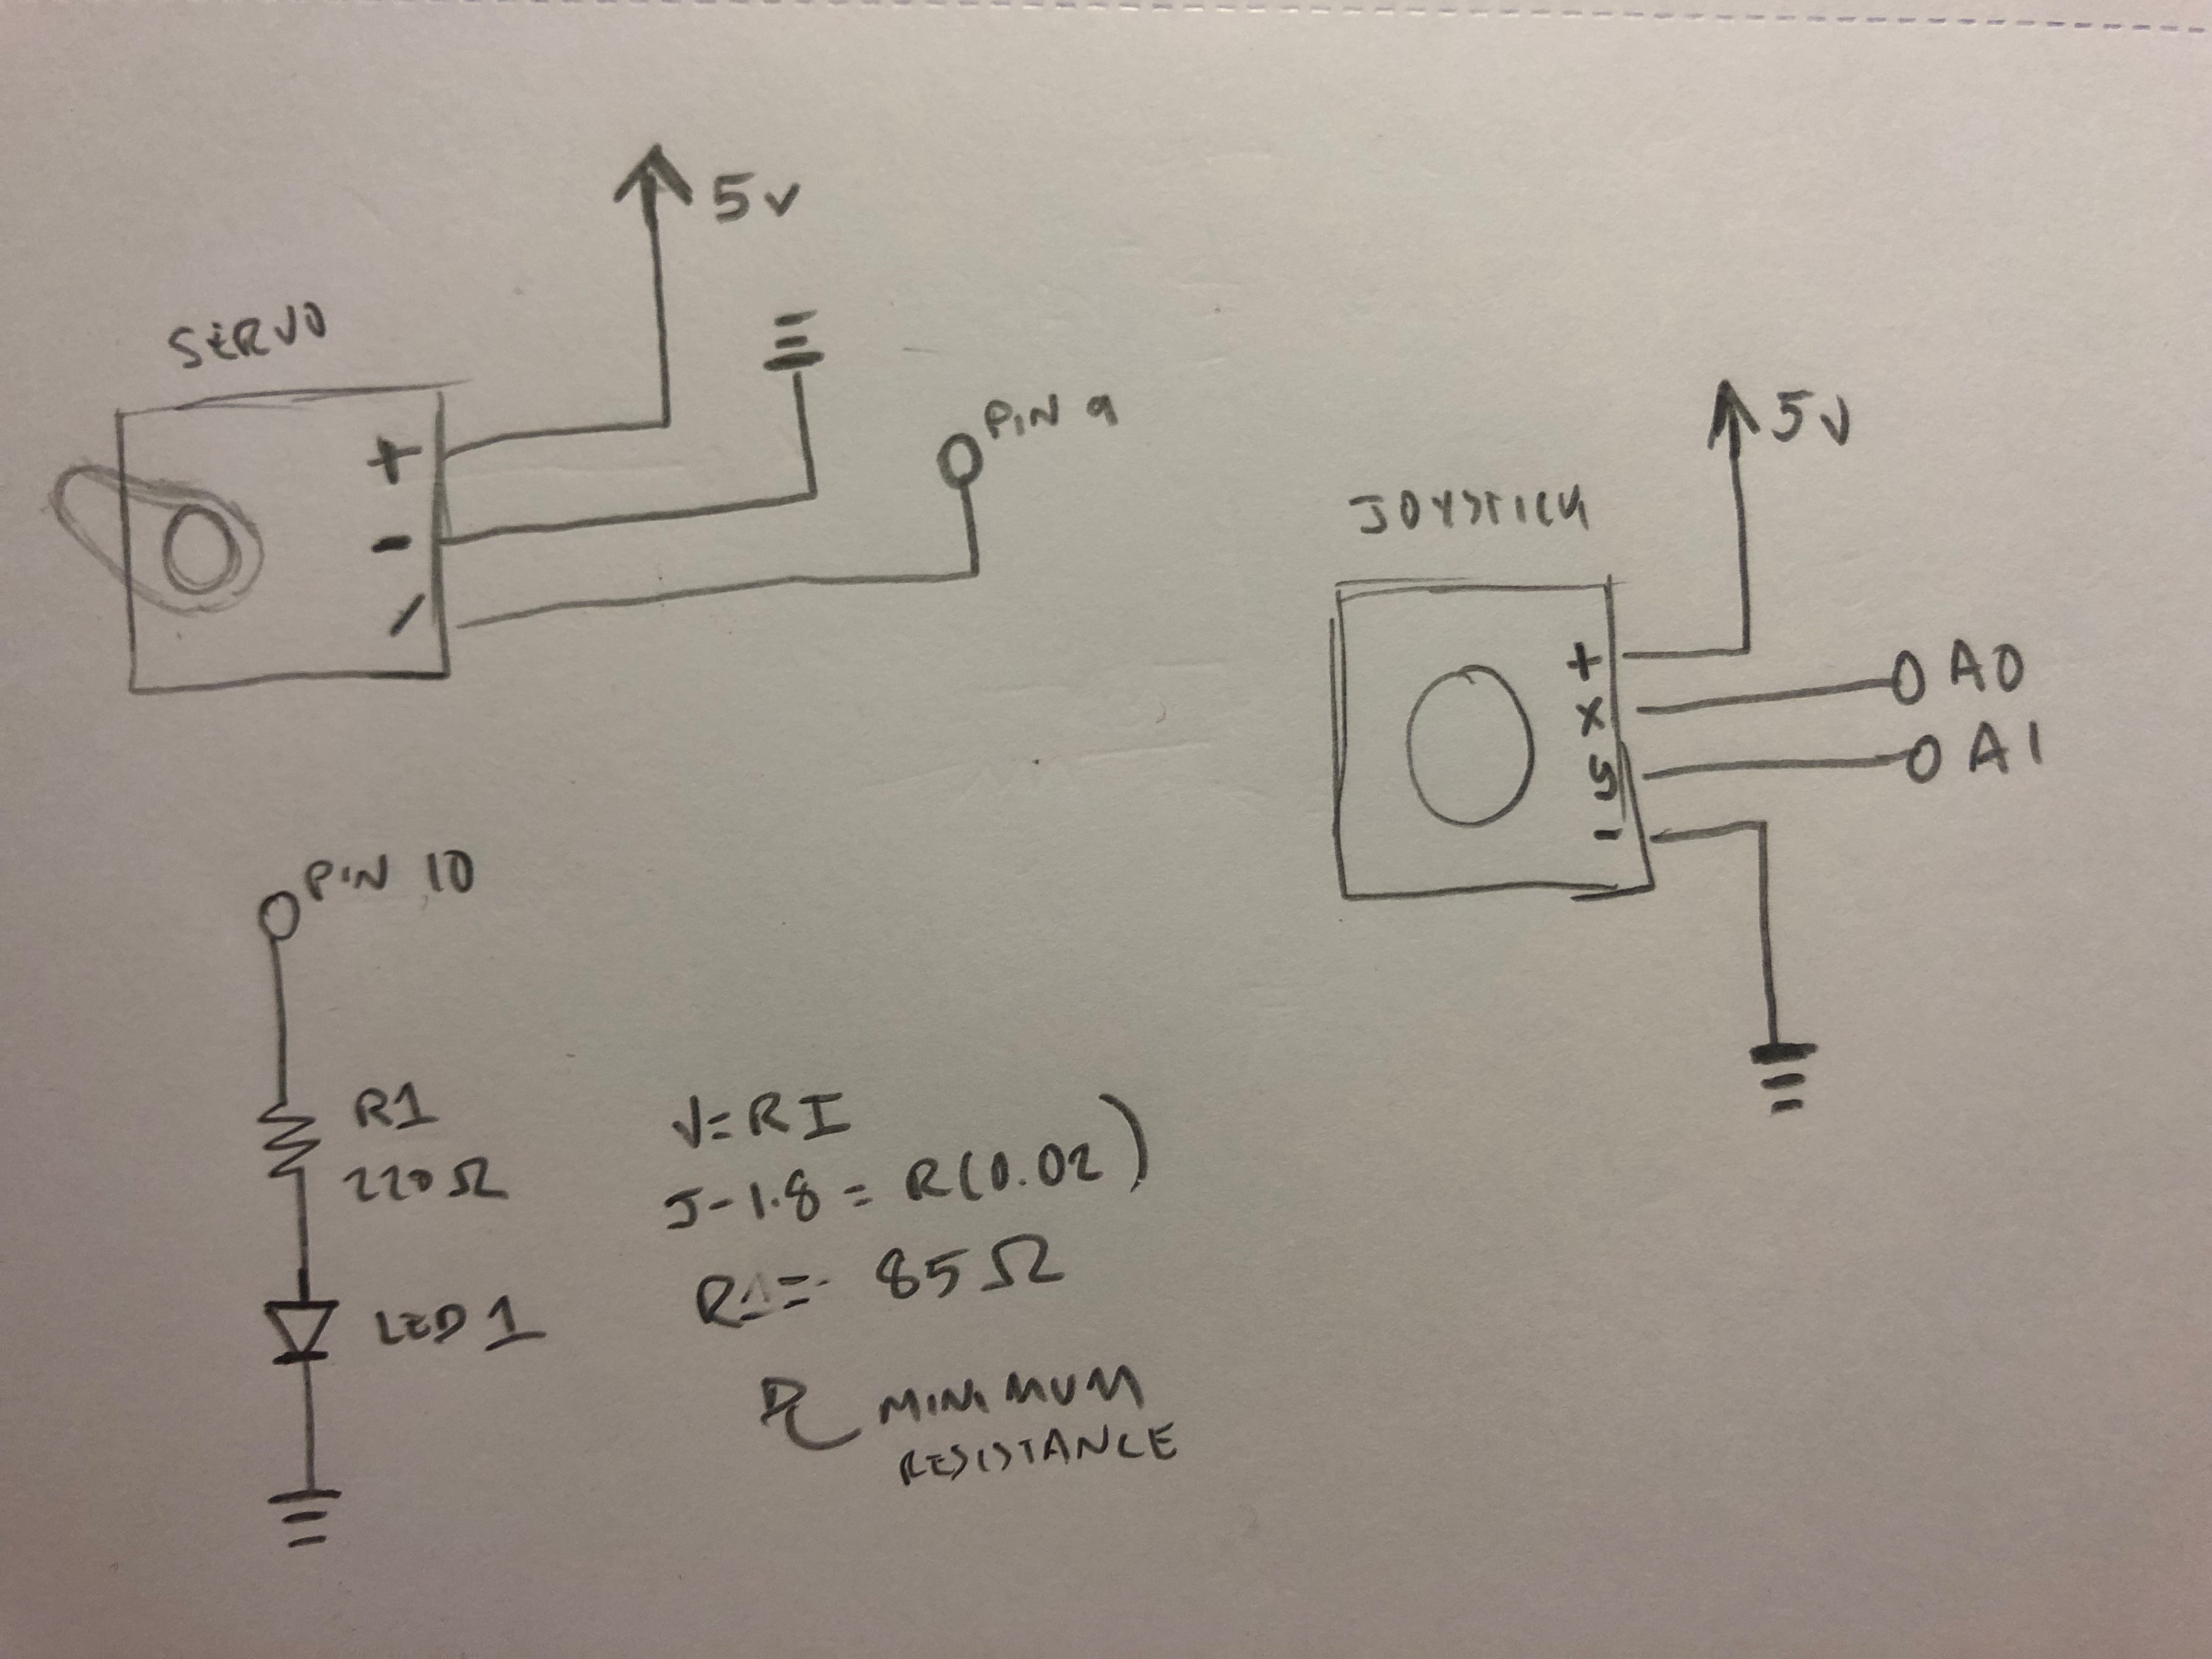 SERVO
5v
+
-
/
PIN 9
JOYSTICK
5V
+
x
y
-
A0
A1
PIN 10
R1
220Ω
LED 1
V=RI
5-1.8 = R(0.02)
R1= 85Ω
MINIMUM
RESISTANCE